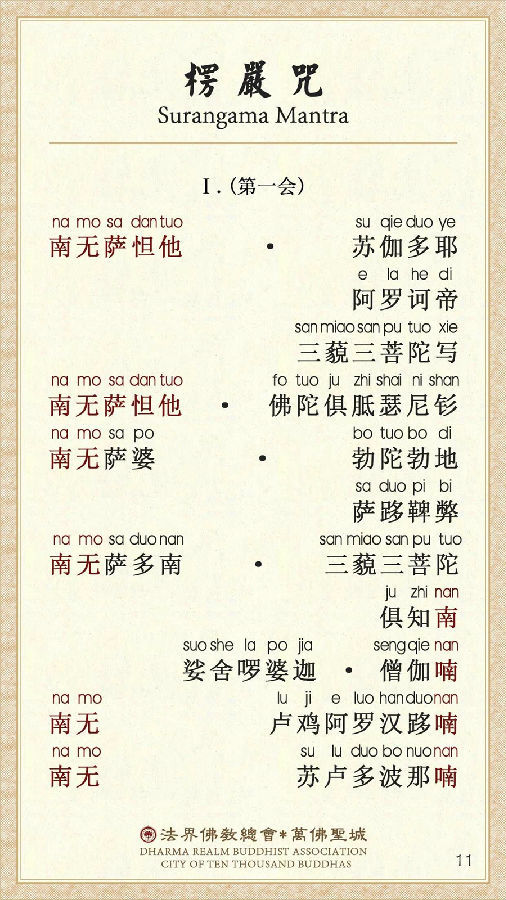 楞嚴咒
Surangama Mantra
I.（第一会）
na mo sa dan tuo su qie duo ye
南无萨怛他 • 苏伽多耶
e la he di
阿罗诃帝
san miao san pu tuo xie
三藐三菩陀写
na mo sa dan tuo fo tuo ju zhi shai ni shan
南无萨怛他 • 佛陀俱胝瑟尼钐
na mo sa po bo tuo bo di
南无萨婆 • 勃陀勃地
sa duo pi bi
萨跢鞞弊
na mo sa duo nan san miao san pu tuo
南无萨多南 • 三藐三菩陀
ju zhi nan
俱知南
suo she la po jia seng qie nan
娑舍啰婆迦 • 僧伽喃
na mo lu ji e luo han duo nan
南无 卢鸡阿罗汉跢喃
na mo su lu duo bo nuo nan
南无 苏卢多波那喃
法界佛教總會•萬佛聖城
DHARMA REALM BUDDHIST ASSOCIATION
CITY OF TEN THOUSAND BUDDHAS
11